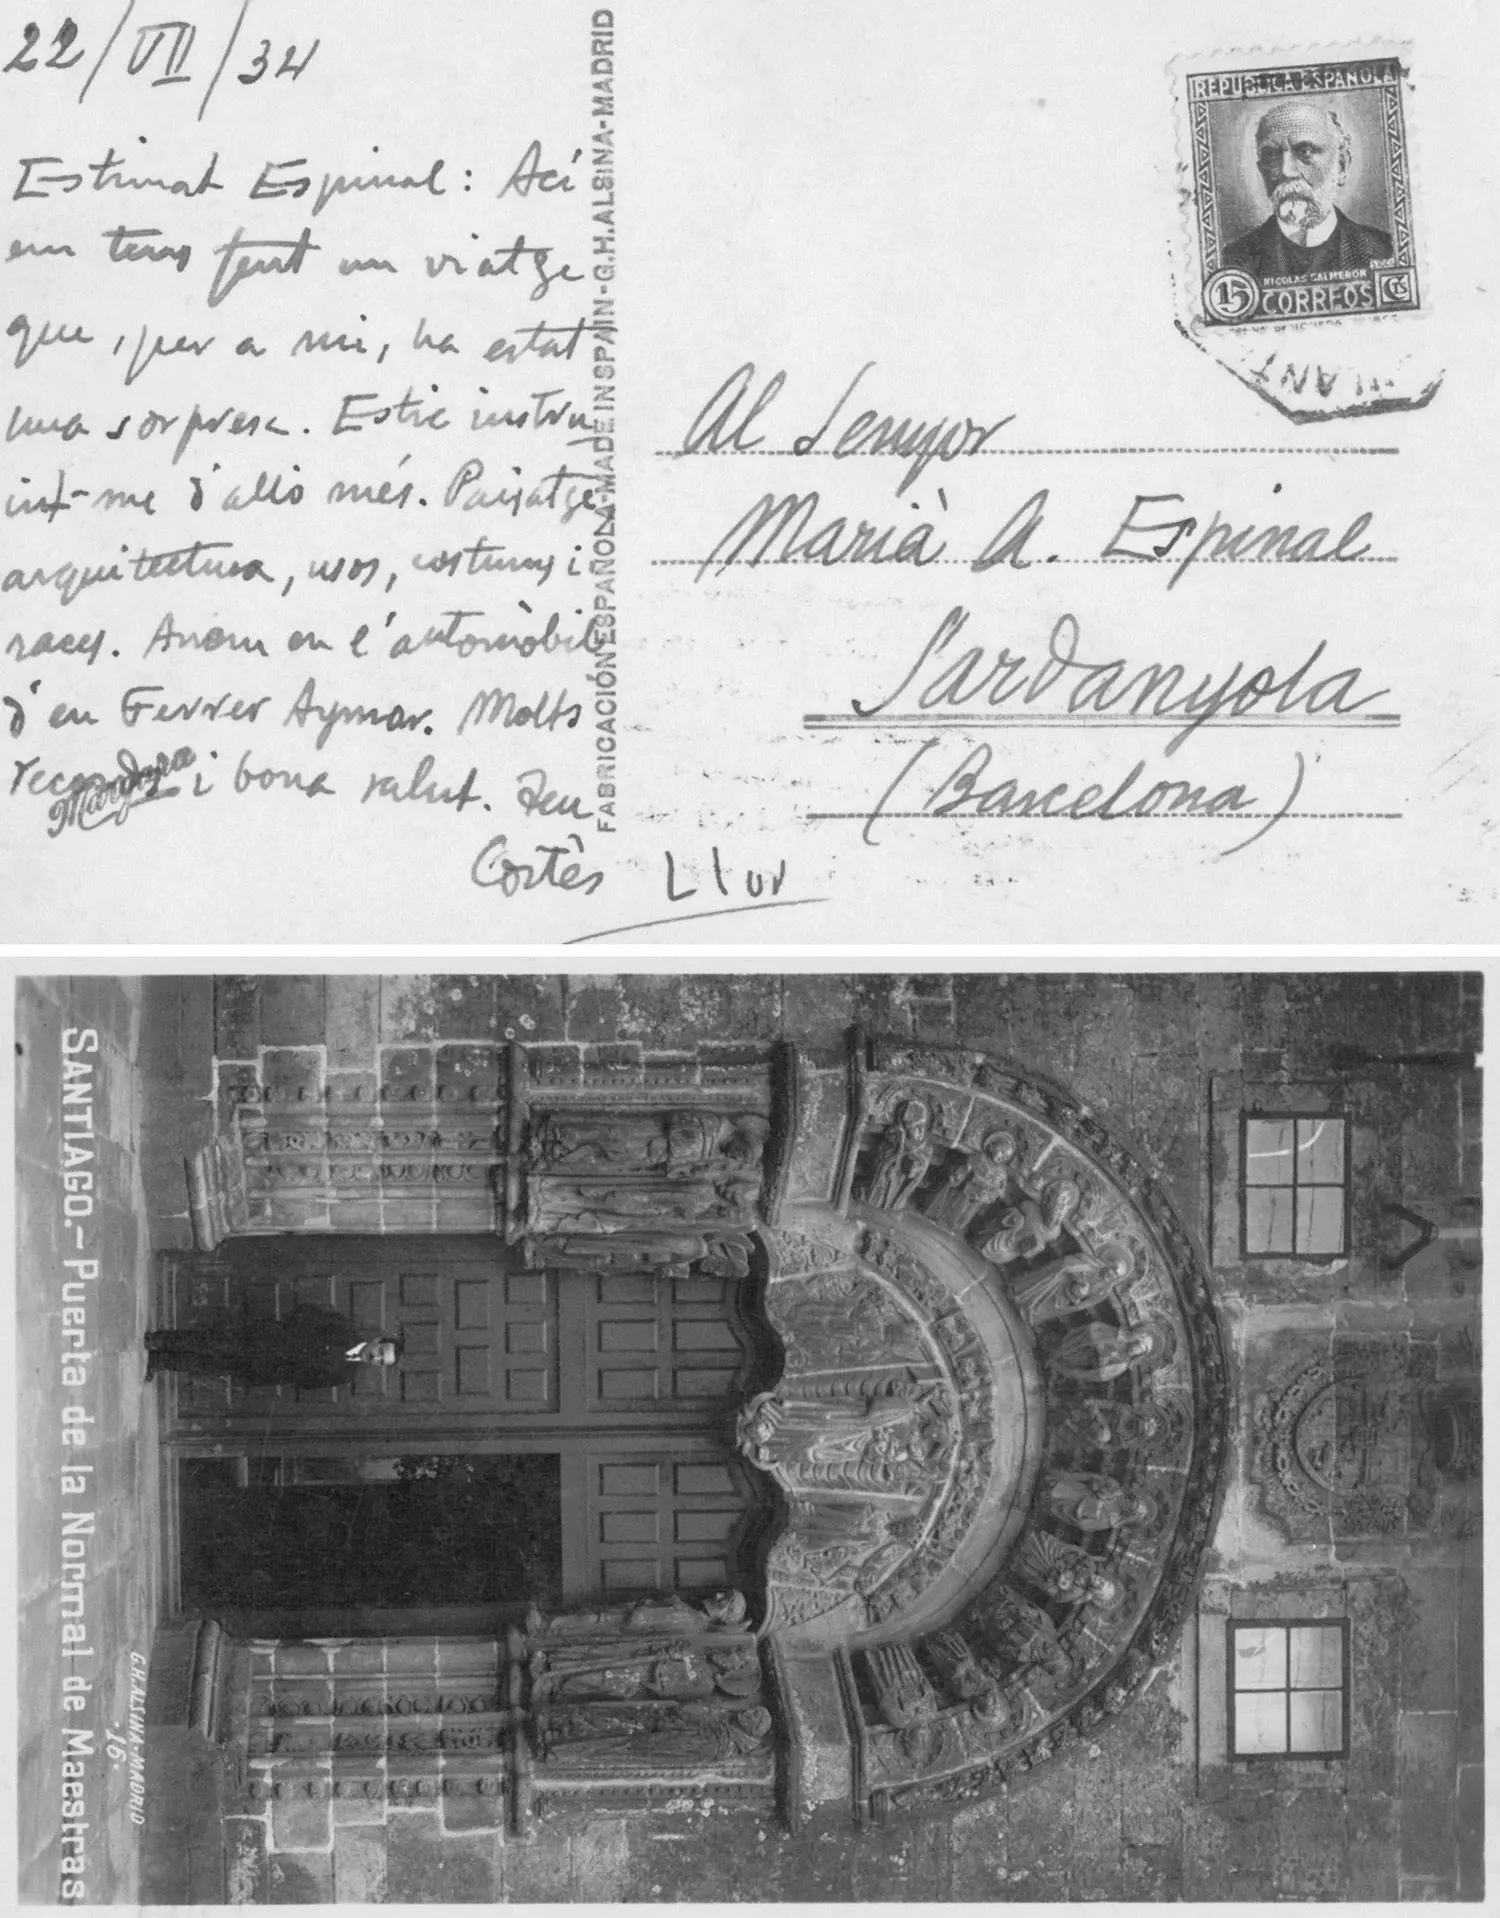 22/VII/34
Estimat Espinal: Ací
em tens fent un viatge
que, per a mi, ha estat
una sorpresa. Estic instru
int-me d'allò més. Paisatge
arquitectura, usos, costums i
races. Anem en l'automòbil
d'en Ferrer Aymar. Molts
records i bona salut. Teu
Cortès
FABRICACIÓN ESPAÑOLA-MADE IN SPAIN-G.H.ALSINA-MADRID
REPUBLICA ESPAÑOLA
NICOLAS SALMERON
15 CORREOS
Al Senyor
Marià A. Espinal
Sardanyola
(Barcelona)
SANTIAGO.- Puerta de la Normal de Maestras
G.H.ALSINA-MADRID
·16·